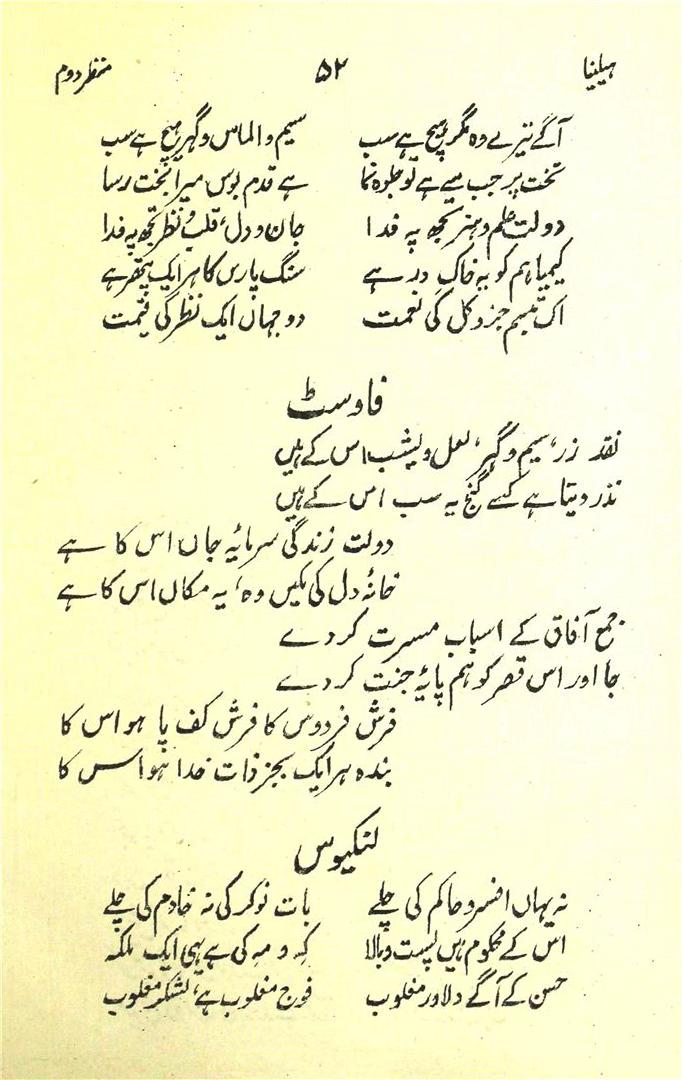 ہیلینا ۵۲ منظر دوم
آگے تیرے وہ مگر ہیچ ہے سب سیم و الماس و گہر ہیچ ہے سب
تخت پر جب سے ہے تو جلوہ نما ہے قدم بوس میرا بخت رسا
دولت علم و ہنر تجھ پہ فدا جان و دل، قلب و نظر تجھ پہ فدا
کیمیا ہم کو یہ خاکِ در ہے سنگ پارس کا ہر ایک پتھر ہے
اک تبسم جز و کل کی نعمت دو جہاں ایک نظر کی قیمت
فاوسٹ
نقد زر، سیم و گہر، لعل و یشب اس کے ہیں
نذر دیتا ہے کسے گنج یہ سب اس کے ہیں
دولت زندگی سرمایۂ جاں اس کا ہے
خانۂ دل کی مکیں وہ، یہ مکاں اس کا ہے
جمع آفاق کے اسباب مسرت کر دے
جا اور اس قصر کو ہم پایۂ جنت کر دے
فرش فردوس کا فرش کف پا ہو اس کا
بندہ ہر ایک بجز ذات خدا ہو اس کا
لنکیوس
نہ یہاں افسر و حاکم کی چلے بات نوکر کی نہ خادم کی چلے
اس کے محکوم ہیں پست و بالا کہ و مہ کی ہے یہی ایک ملکہ
حسن کے آگے دلاور مغلوب فوج مغلوب ہے، لشکر مغلوب